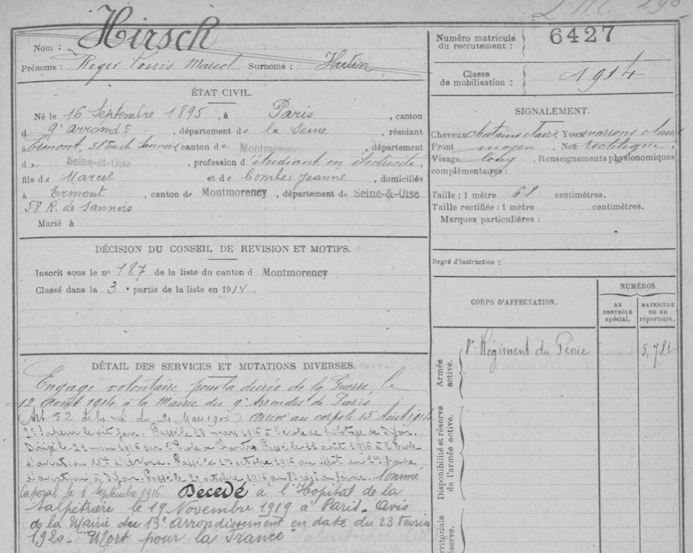 Hirsch
Nom :
Prénoms : Roger Louis Marcel Surnoms :
Numéro matricule du recrutement : 6427
Classe de mobilisation : 1914
ÉTAT CIVIL.
Né le 16 Septembre 1895, à Paris, canton
d 9e arrondt, département de la Seine, résidant
à Ermont, canton de Montmorency, département
de Seine-et-Oise, profession d'étudiant en électricité
fils de Marcel et de Combes Jeanne, domiciliés
à Ermont, canton de Montmorency, département de Seine-&-Oise
58 R. de Sannois
Marié à
SIGNALEMENT.
Cheveux chatains clairs Yeux marrons clairs
Front moyen, Nez rectiligne
Visage long, Renseignements physionomiques
complémentaires :
Taille : 1 mètre 68 centimètres.
Taille rectifiée : 1 mètre centimètres.
Marques particulières :
Degré d'instruction :
DÉCISION DU CONSEIL DE REVISION ET MOTIFS.
Inscrit sous le no 187 de la liste du canton d Montmorency
Classé dans la 3e partie de la liste en 1914.
CORPS D'AFFECTATION.
NUMÉROS
AU CONTRÔLE spécial.
MATRICULE OU AU répertoire.
Armée active.
8e Régiment du Génie
5,781
Disponibilité et réserve de l'armée active.
Armée territoriale
DÉTAIL DES SERVICES ET MUTATIONS DIVERSES.
Engagé volontaire pour la durée de la Guerre, le
12 Août 1914 à la Mairie du 9e Arrondt de Paris
(Art 52 de la loi du 21 Mars 1905) arrivé au corps le 13 Août 1914
caporal le 6 Septembre 1916. Décédé à l'Hopital de la
Salpétrière le 19 Novembre 1919 à Paris. Avis
de la Mairie du 13e Arrondissement en date du 23 Février
1920. Mort pour la France